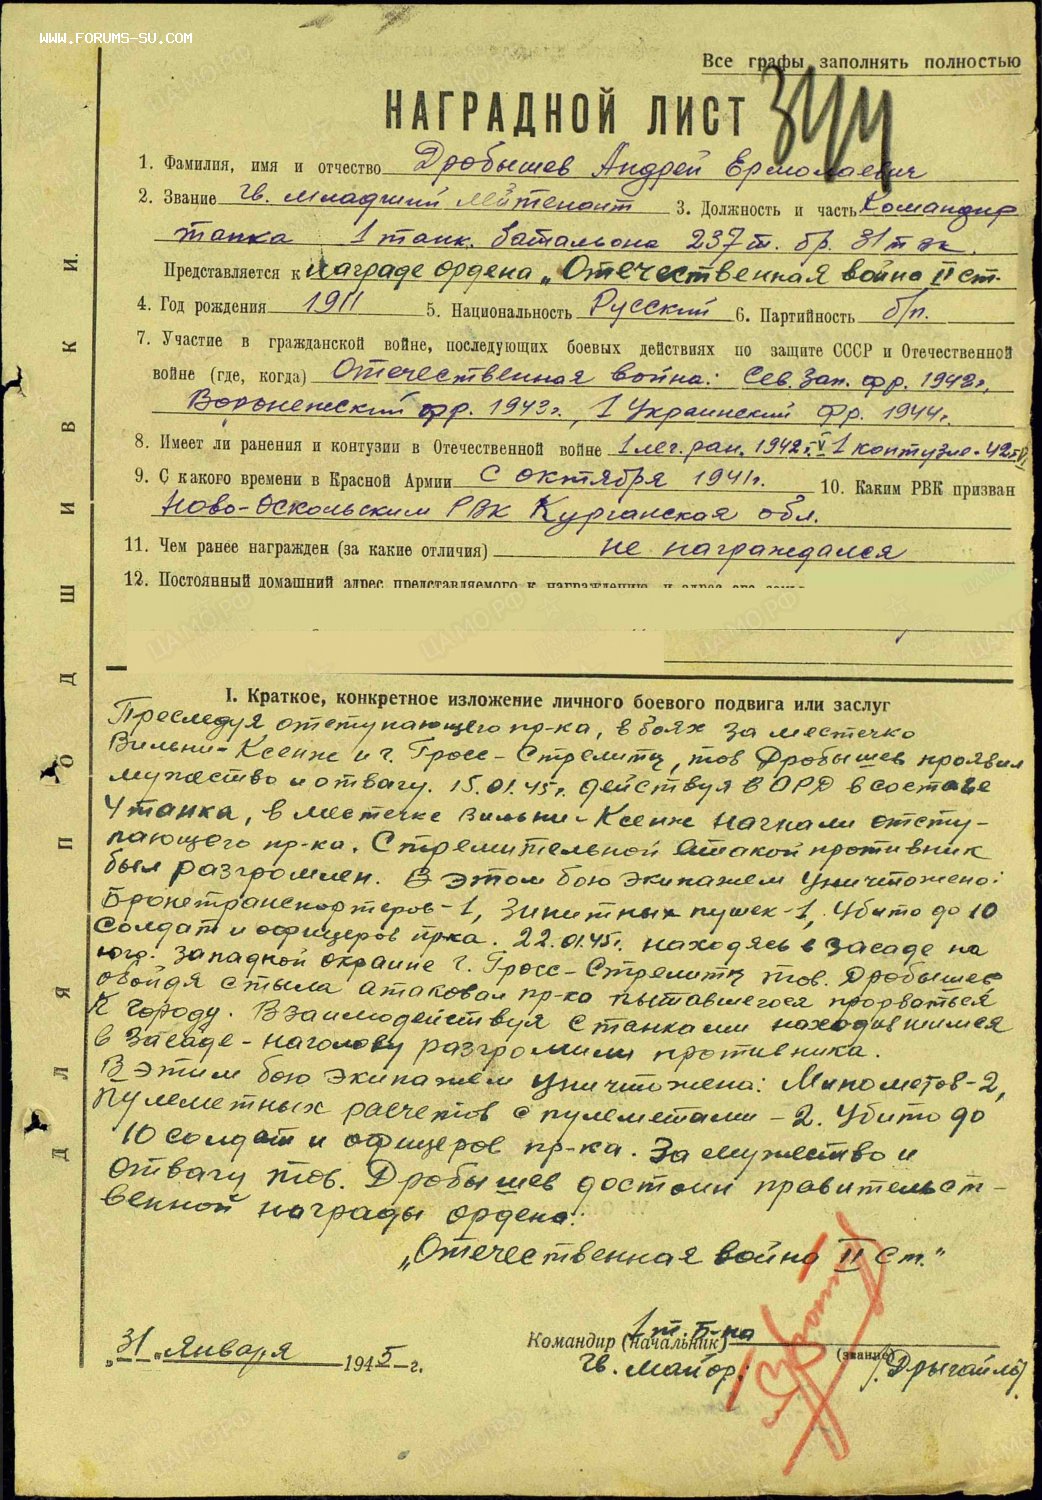 WWW.FORUMS-SU.COM
Все графы заполнять полностью
НАГРАДНОЙ ЛИСТ
1. Фамилия, имя и отчество Дробышев Андрей Ермолаевич
2. Звание Гв. младший лейтенант 3. Должность и часть Командир
танка 1 танк. батальона 237 т. бр. 31 тк.
Представляется к награде ордена „Отечественная война II ст.
4. Год рождения 1911 5. Национальность Русский 6. Партийность б/п.
7. Участие в гражданской войне, последующих боевых действиях по защите СССР и Отечественной
войне (где, когда) Отечественная война: Сев. Зап. фр. 1942 г.,
Воронежский фр. 1943 г., 1 Украинский фр. 1944 г.
8. Имеет ли ранения и контузии в Отечественной войне 1 лег. ран. 1942 г. V 1 контузия - 42 г.
9. С какого времени в Красной Армии С октября 1941 г. 10. Каким РВК призван
Ново-Оскольским РВК Курганская обл.
11. Чем ранее награжден (за какие отличия) не награждался
12. Постоянный домашний адрес представляемого к награждению и адрес его семьи
ДЛЯ ПОДШИВКИ.
I. Краткое, конкретное изложение личного боевого подвига или заслуг
Преследуя отступающего пр-ка, в боях за местечко
Вильки-Ксенж и г. Гросс-Стрелитц, тов Дробышев проявил
мужество и отвагу. 15.01.45 г. действуя в ОРД в составе
4 танка, в местечке Вильки-Ксенж нагнали отсту-
пающего пр-ка. Стремительной атакой противник
был разгромлен. В этом бою экипажем уничтожено:
Бронетранспортеров-1, зинитных пушек-1, убито до 10
солдат и офицеров пр-ка. 22.01.45 г. находясь в засаде на
юго. западной окраине г. Гросс-Стрелитц тов. Дробышев
обойдя с тыла атаковал пр-ка пытавшегося прорваться
к городу. Взаимодействуя с танками находившимися
в засаде - наголову разгромили противника.
В этим бою экипажем уничтожена: Минометов-2,
пулеметных расчетов с пулеметами - 2. убито до
10 солдат и офицеров пр-ка. За мужество и
отвагу тов. Дробышев достоин правительст-
венной награды ордена:
„Отечественная война II ст."
Командир (начальник) 1 т. б-на
„31„ января 1945 г.
Гв. майор: (звание) /Дрыгайло/